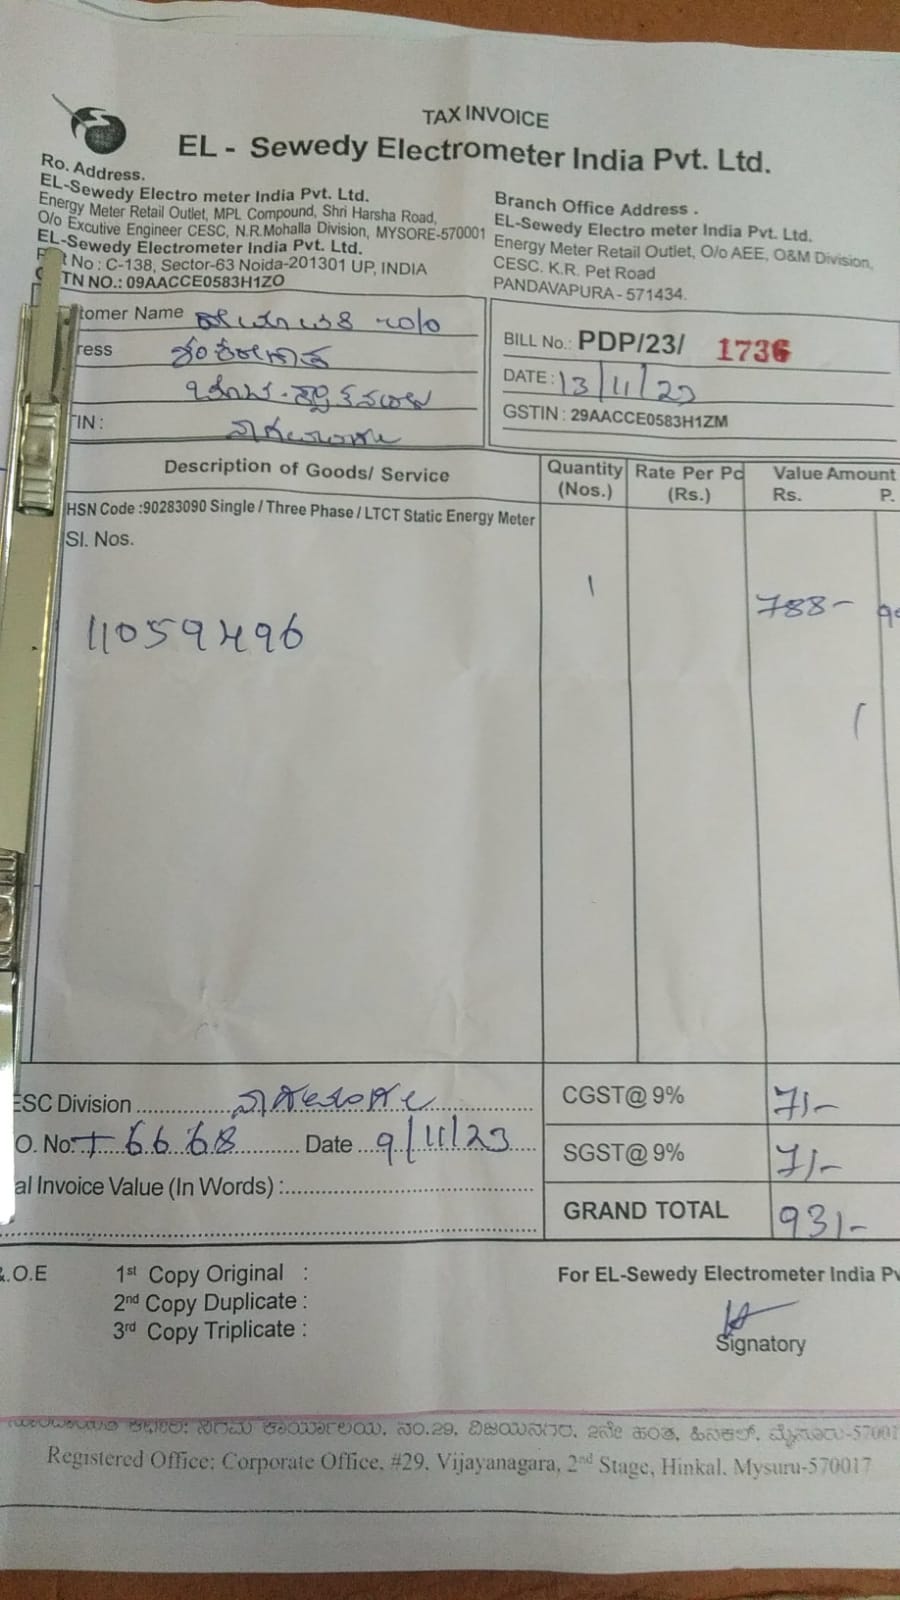 TAX INVOICE
EL - Sewedy Electrometer India Pvt. Ltd.
Ro. Address.
EL-Sewedy Electro meter India Pvt. Ltd.
Energy Meter Retail Outlet, MPL Compound, Shri Harsha Road,
O/o Excutive Engineer CESC, N.R.Mohalla Division, MYSORE-570001
EL-Sewedy Electrometer India Pvt. Ltd.
No : C-138, Sector-63 Noida-201301 UP, INDIA
TN NO.: 09AACCE0583H1ZO
Branch Office Address .
EL-Sewedy Electro meter India Pvt. Ltd.
Energy Meter Retail Outlet, O/o AEE, O&M Division,
CESC. K.R. Pet Road
PANDAVAPURA - 571434.
tomer Name
ress
TIN :
BILL No.: PDP/23/ 1736
DATE : 13/11/23
GSTIN : 29AACCE0583H1ZM
Description of Goods/ Service Quantity (Nos.) Rate Per Pc (Rs.) Value Amount Rs. P.
HSN Code :90283090 Single / Three Phase / LTCT Static Energy Meter
Sl. Nos.
1 788-
11059496
ESC Division
CGST@ 9% 71-
O. No. 6668 Date 9/11/23
SGST@ 9% 71-
al Invoice Value (In Words) :
GRAND TOTAL 931-
&.O.E
1st Copy Original :
2nd Copy Duplicate :
3rd Copy Triplicate :
For EL-Sewedy Electrometer India Pv
Signatory
ನಿಗಮ ಕಾರ್ಯಾಲಯ, ನಂ.29, ವಿಜಯನಗರ, 2ನೇ ಹಂತ, ಹಿನಕಲ್, ಮೈಸೂರು-57001
Registered Office: Corporate Office, #29, Vijayanagara, 2nd Stage, Hinkal, Mysuru-570017